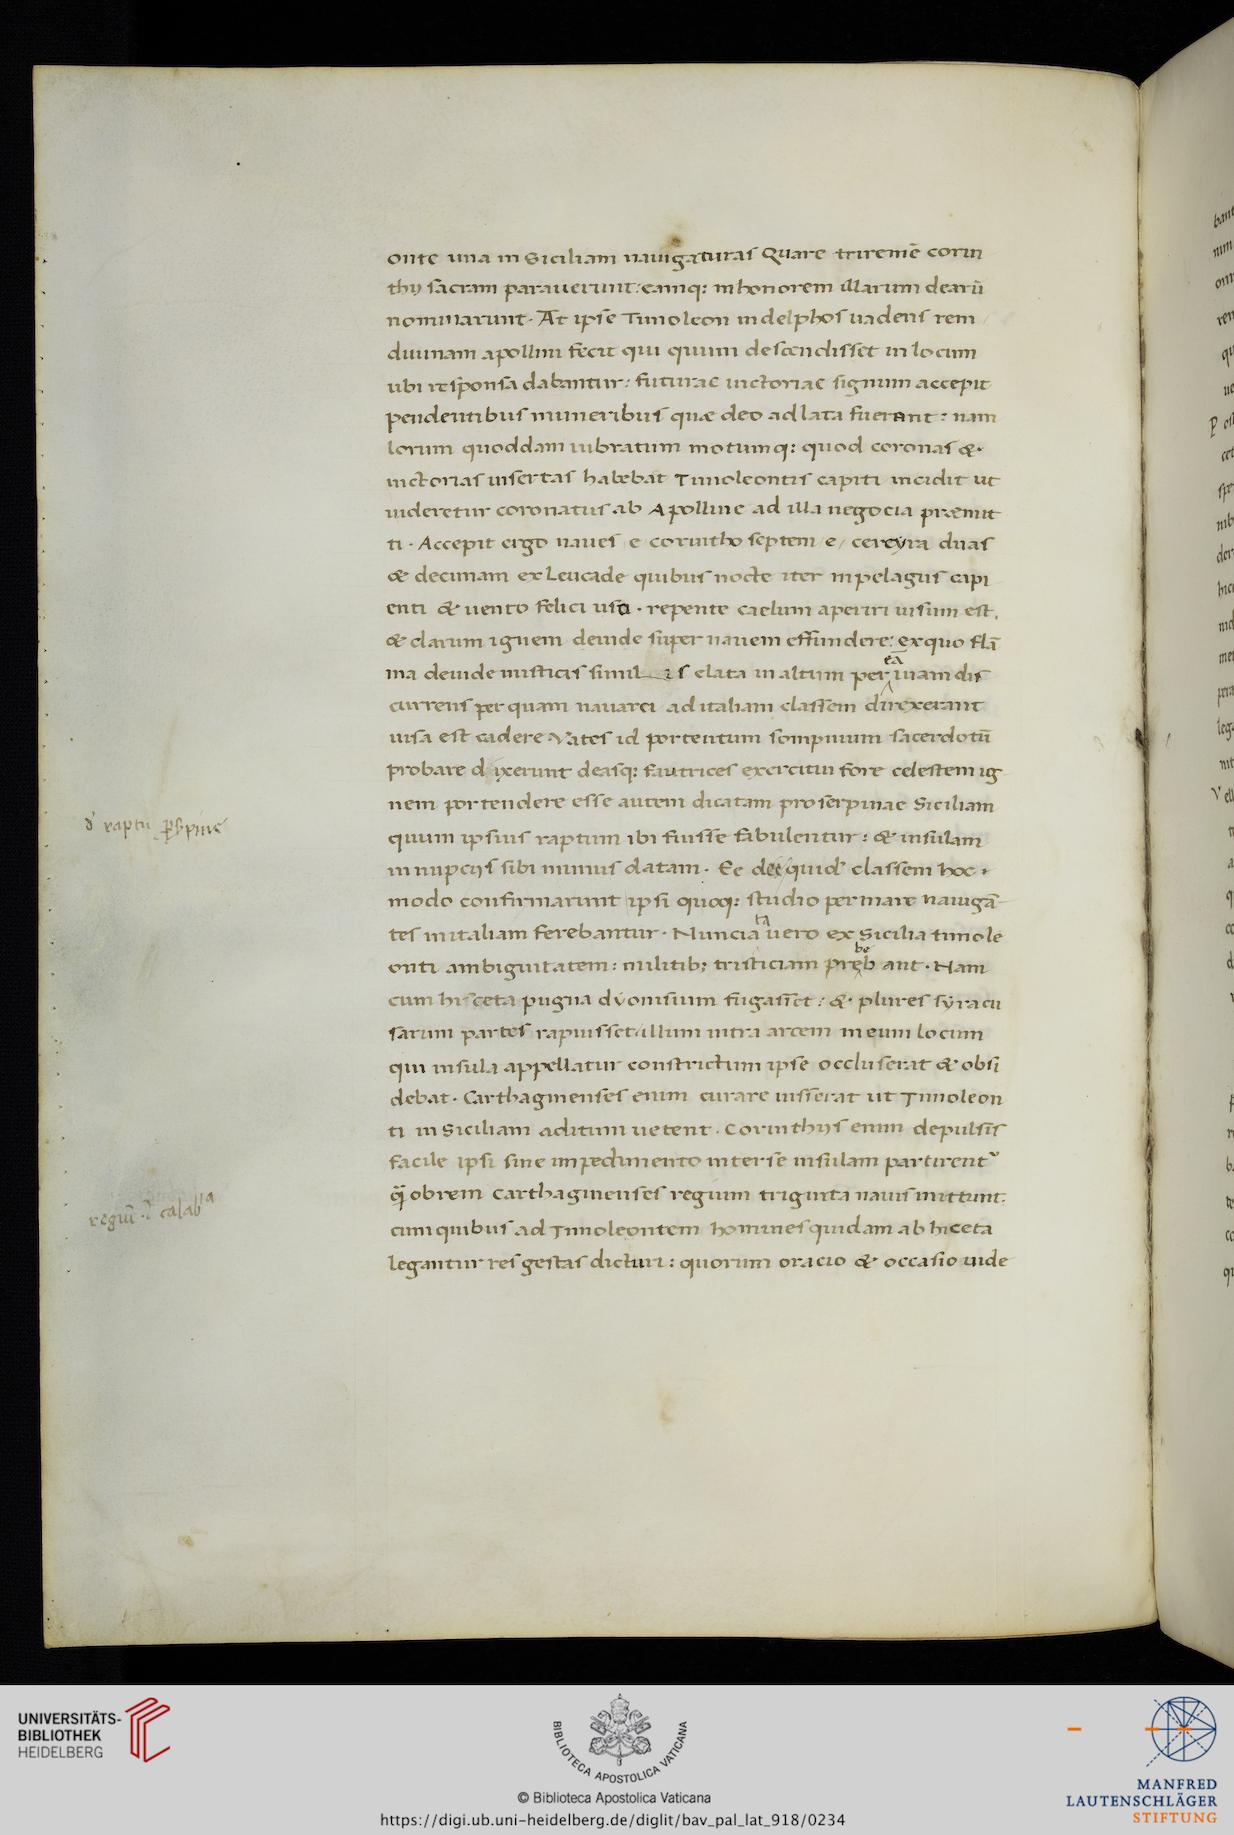 onte una in Siciliam nauigaturas Quare triremē corin
thij sacram parauerunt: eamq: in honorem illarum dearū
nominarunt. At ipse Timoleon in delphos uadens rem
diuinam apollini fecit qui quum descendisset in locum
ubi responsa dabantur: futurae uictoriae signum accepit
pendentibus muneribus quæ deo adlata fuerant: nam
lorum quoddam uibratum motumq: quod coronas &
uictorias insertas habebat Timoleontis capiti incidit ut
uideretur coronatus ab Apolline ad illa negocia præmit
ti. Accepit ergo naues e corintho septem e cereyra duas
& decimam ex Leucade quibus nocte iter in pelagus capi
enti & uento felici uso. repente caelum aperiri uisum est.
& clarum ignem deinde super nauem effundere: ex quo flā
ma deinde misticis simil is elata in altum per eā uiam dis
currens per quam nauarci ad italiam classem direxerant
uisa est cadere Vates id portentum sompnium sacerdotū
probare dixerunt deasq: fautrices exercitui fore celestem ig
nem portendere esse autem dicatam proserpinae Siciliam
quum ipsius raptum ibi fuisse fabulentur: & insulam
in nupcijs sibi munus datam. Ee dee quid classem hoc
modo confirmarunt ipsi quoq: studio per mare nauigā
tes in italiam ferebantur. Nuncia ta uero ex Sicilia timole
onti ambiguitatem: militib; tristiciam preb be ant. Nam
cum hisceta pugna dyonisium fugasset: & plures syracu
sarum partes rapuisset illum intra arcem in eum locum
qui insula appellatur constrictum ipse occluserat & obsi
debat. Carthaginenses enim curare iusserat ut Timoleon
ti in Siciliam aditum uetent. Corinthijs enim depulsis
facile ipsi sine impedimento inter se insulam partirent
q̄obrem Carthaginenses regium triginta nauis mittunt:
cum quibus ad Timoleontem homines quidam ab hiceta
legantur res gestas dicturi: quorum oracio & occasio uide
d' raptu ꝓs̄pine
regiū. ī calab'a
UNIVERSITÄTS-
BIBLIOTHEK
HEIDELBERG
BIBLIOTECA APOSTOLICA VATICANA
© Biblioteca Apostolica Vaticana
https://digi.ub.uni-heidelberg.de/diglit/bav_pal_lat_918/0234
MANFRED
LAUTENSCHLÄGER
STIFTUNG